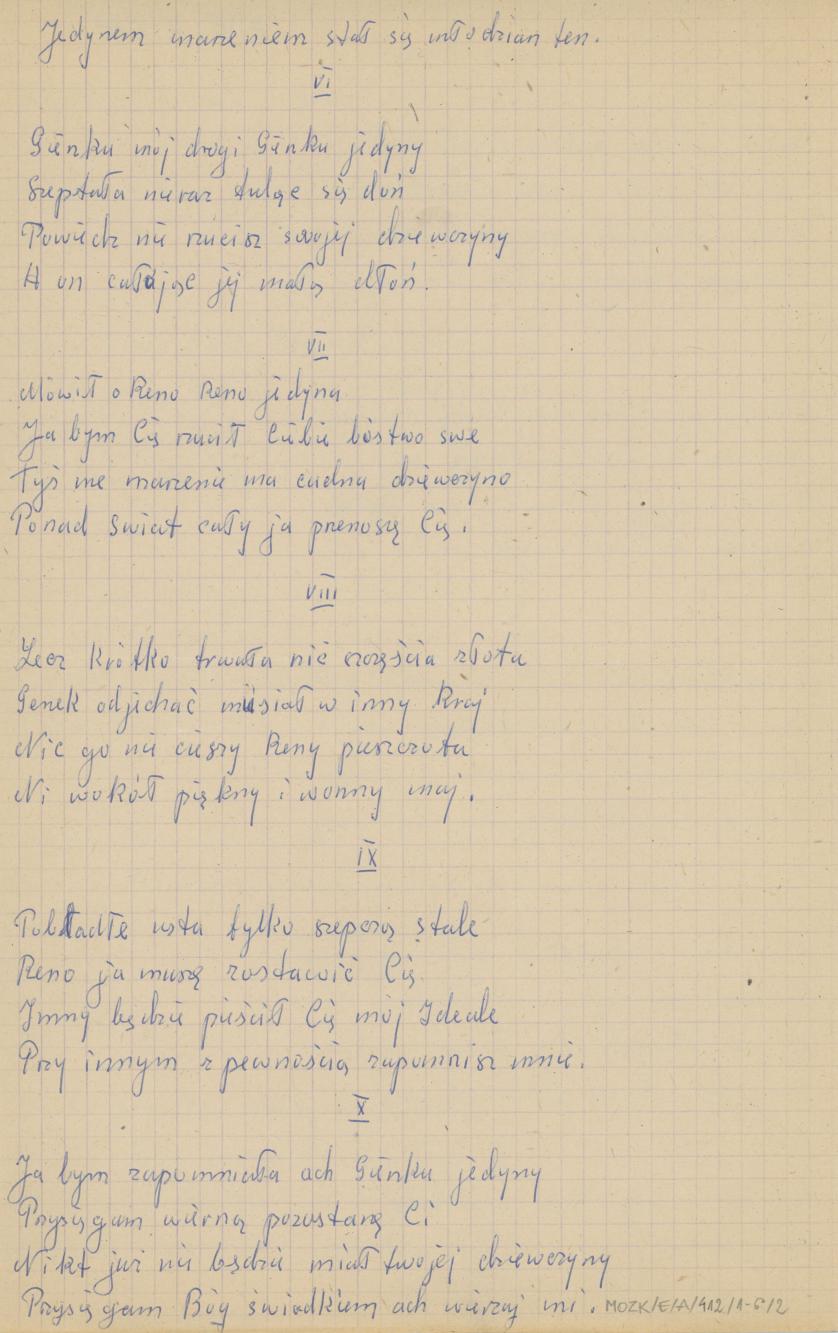 Jedynem marzeniem stał się młodzian ten.
VI
Gienku mój drogi Gienku jedyny
Szeptała nieraz tuląc się doń
Powiedz nie rzucisz swojej dziewczyny
A on całując jej małą dłoń.
VII
Mówił o Reno Reno jedyna
Ja bym Cię rzucił Ciebie bóstwo swe
Tyś me marzenie ma cudna dziewczyno
Ponad świat cały ja prenoszę Cię.
VIII
Lecz krótko trwała nić szczęścia złota
Genek odjechać musiał w inny kraj
Nic go nie cieszy Reny pieszczota
Ni wokół piękny i wonny maj.
IX
Pobladłe usta tylko szepczą stale
Reno ja muszę zostawić Cię
Inny będzie pieścił Cię mój Ideale
Przy innym z pewnością zapomnisz mnie.
X
Ja bym zapomniała ach Gienku jedyny
Przysięgam wierną pozostanę Ci
Nikt już nie będzie miał twojej dziewczyny
Przysięgam Bóg świadkiem ach wierzaj mi.
MOZK/E/A/412/1-6/2